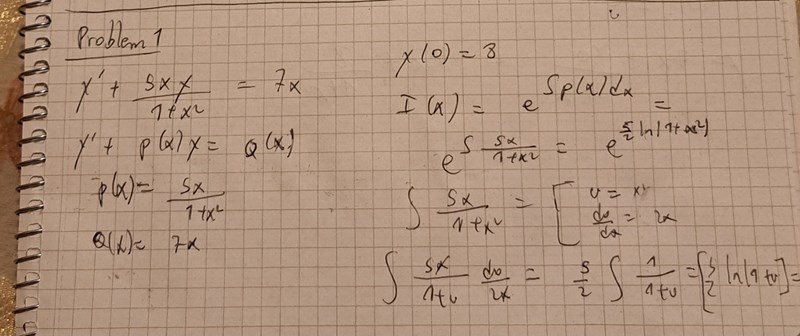 Problem 1
y' + 5xy/1+x² = 7x
y' + p(x)y = Q(x)
p(x) = 5x/1+x²
Q(x) = 7x
y(0) = 3
I(x) = e^∫p(x)dx =
e^∫ 5x/1+x² = e^5/2 ln|1+x²|
∫ 5x/1+x² = [ u = x² du/dx = 2x
∫ 5x/1+u du/2x = 5/2 ∫ 1/1+u = [5/2 ln|1+u|] =